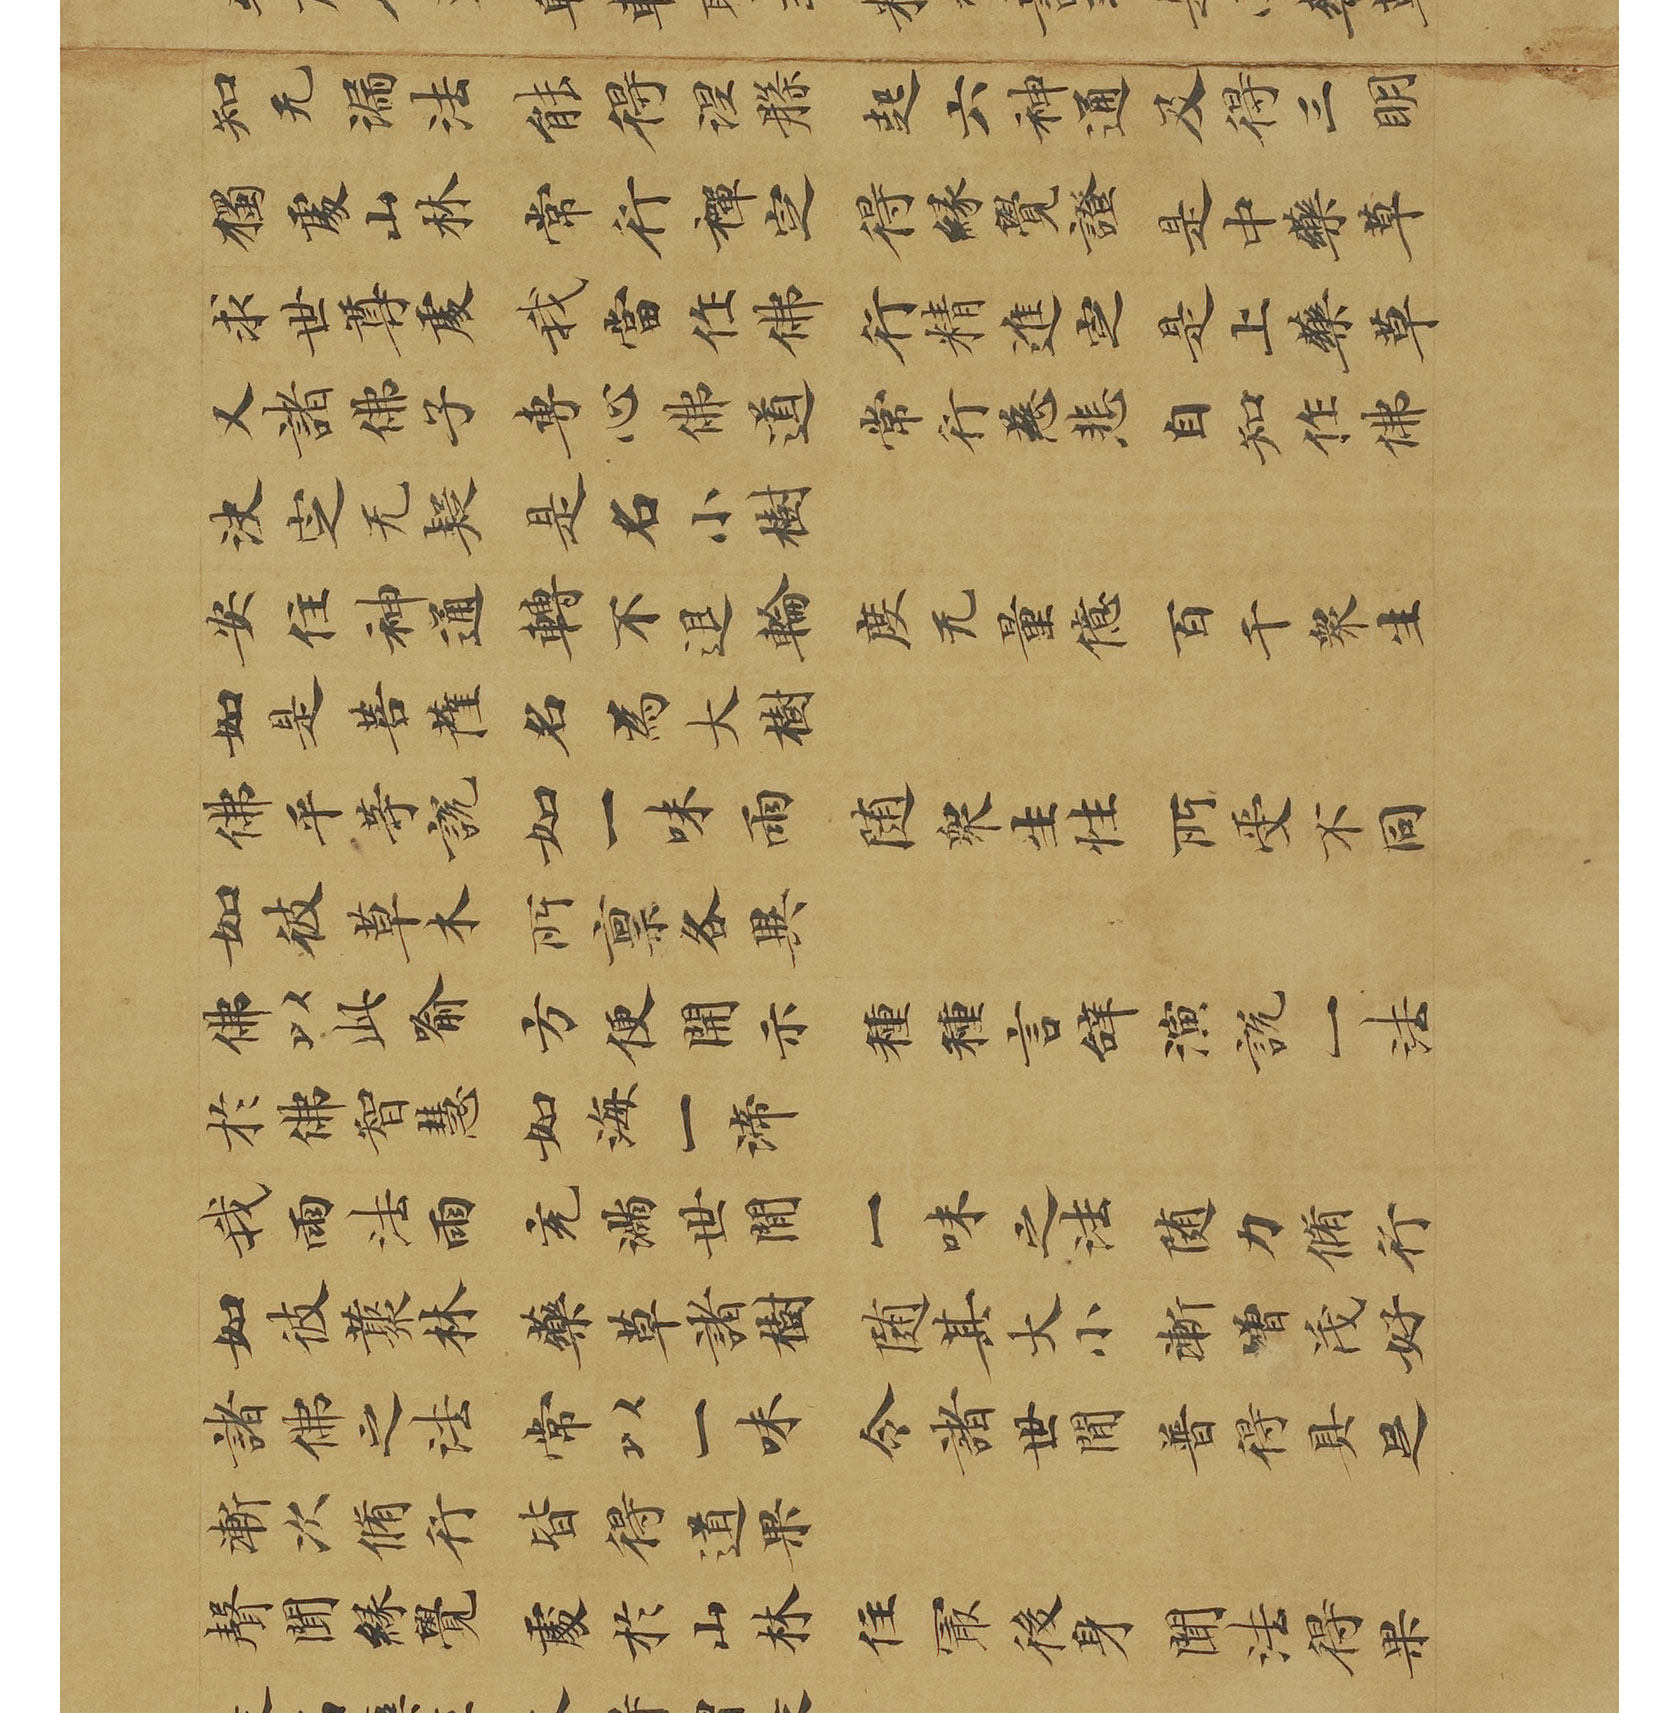 知无漏法　能得涅槃　起六神通　及得三明
獨處山林　常行禪定　得緣覺證　是中藥草
求世尊處　我當作佛　行精進定　是上藥草
又諸佛子　專心佛道　常行慈悲　自知作佛
決定无疑　是名小樹
安住神通　轉不退輪　度无量億　百千衆生
如是菩薩　名為大樹
佛平等說　如一味雨　随衆生性　所受不同
如彼草木　所禀各異
佛以此喻　方便開示　種種言辝　演說一法
於佛智慧　如海一渧
我雨法雨　充滿世間　一味之法　随力脩行
如彼藂林　藥草諸樹　随其大小　漸增茂好
諸佛之法　常以一味　令諸世間　普得具足
漸次脩行　皆得道果
聲聞緣覺　處於山林　住冣後身　聞法得果